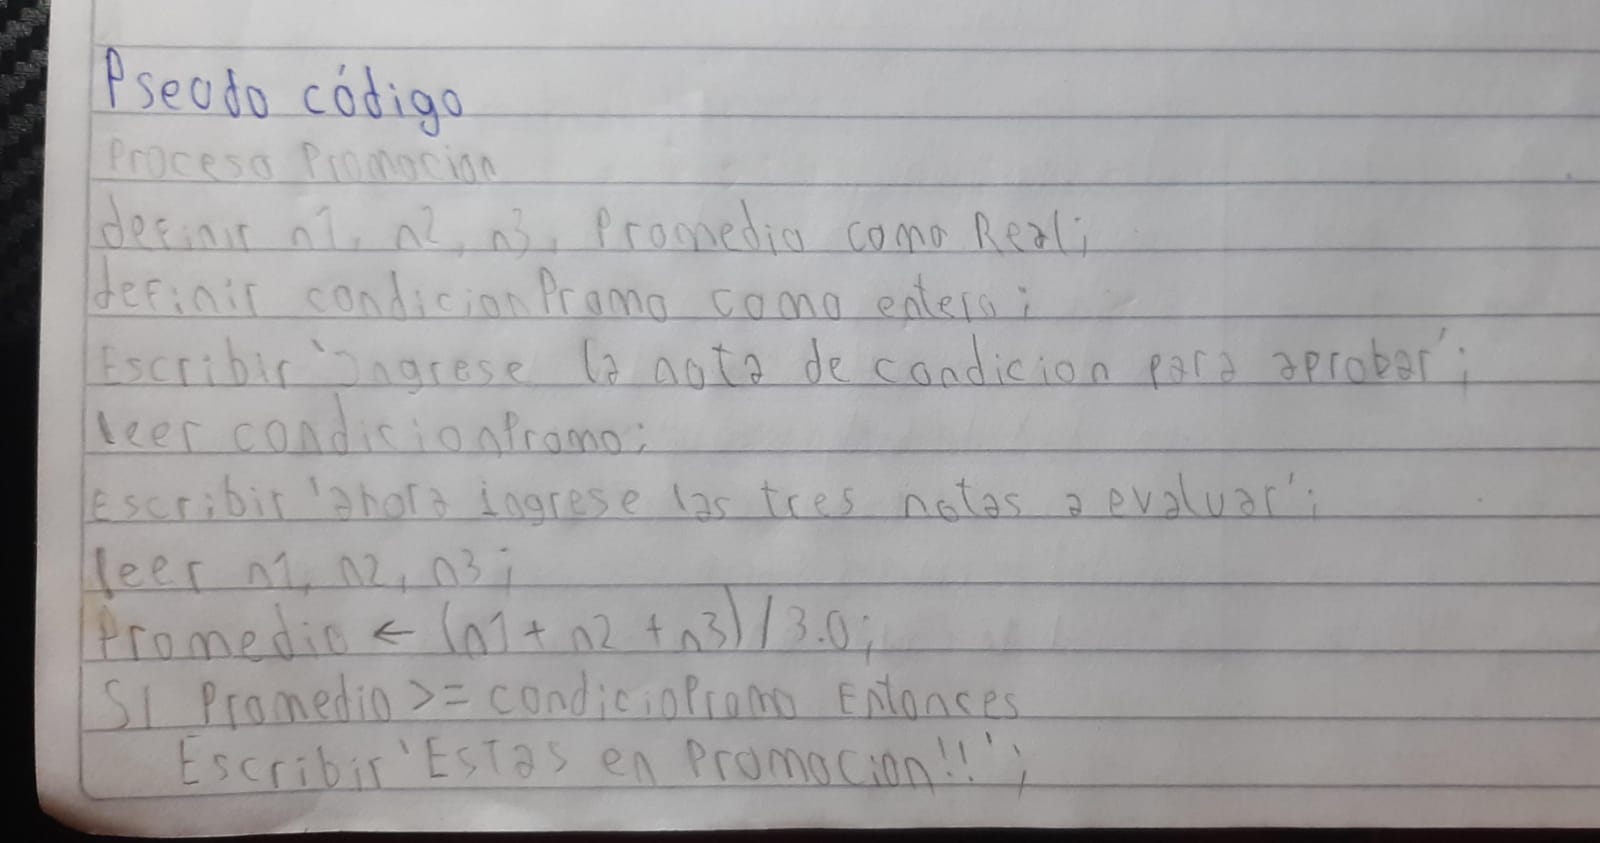 Pseudo código
Proceso Promocion
definir n1, n2, n3, Promedio como Real;
definir condicionPromo como entero;
Escribir 'Ingrese la nota de condicion para aprobar';
leer condicionPromo;
Escribir 'ahora ingrese las tres notas a evaluar';
leer n1, n2, n3;
Promedio ← (n1 + n2 + n3) / 3.0;
SI Promedio >= condicioPromo Entonces
Escribir 'Estas en Promocion!!';